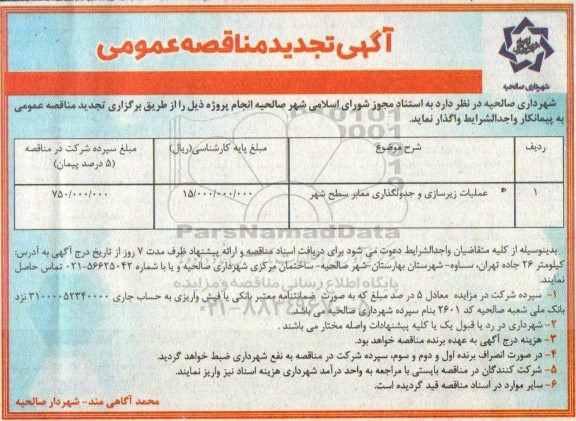 آگهی تجدید مناقصه عمومی
شهرداری صالحیه
شهرداری صالحیه در نظر دارد به استناد مجوز شورای اسلامی شهر صالحیه انجام پروژه ذیل را از طریق برگزاری تجدید مناقصه عمومی
به پیمانکار واجدالشرایط واگذار نماید.
ردیف شرح موضوع مبلغ پایه کارشناسی(ریال) مبلغ سپرده شرکت در مناقصه
(۵ درصد پیمان)
۱ عملیات زیرسازی و جدولگذاری معابر سطح شهر ۱۵/۰۰۰/۰۰۰/۰۰۰ ۷۵۰/۰۰۰/۰۰۰
ParsNamadData
بدینوسیله از کلیه متقاضیان واجدالشرایط دعوت می شود برای دریافت اسناد مناقصه و ارائه پیشنهاد ظرف مدت ۷ روز از تاریخ درج آگهی به آدرس:
کیلومتر ۲۶ جاده تهران، ساوه- شهرستان بهارستان- شهر صالحیه- ساختمان مرکزی شهرداری صالحیه و یا با شماره ۵۶۶۲۵۰۴۲-۰۲۱ تماس حاصل
نمایند.
پایگاه اطلاع رسانی مناقصه و مزایده
۱- سپرده شرکت در مزایده معادل ۵ در صد مبلغ که به صورت ضمانتنامه معتبر بانکی یا فیش واریزی به حساب جاری ۳۱۰۰۰۰۵۲۳۴۰۰۰۰ نزد
بانک ملی شعبه صالحیه کد ۲۶۰۱ بنام سپرده شهرداری صالحیه می باشد.
۲- شهرداری در رد یا قبول یک یا کلیه پیشنهادات واصله مختار می باشد.
۳- هزینه درج آگهی به عهده برنده مناقصه خواهد بود.
۴- در صورت انصراف برنده اول و دوم و سوم، سپرده شرکت در مناقصه به نفع شهرداری ضبط خواهد گردید.
۵- شرکت کنندگان در مناقصه بایستی با مراجعه به واحد درآمد شهرداری هزینه اسناد نیز واریز نمایند.
۶- سایر موارد در اسناد مناقصه قید گردیده است.
محمد آگاهی مند- شهردار صالحیه